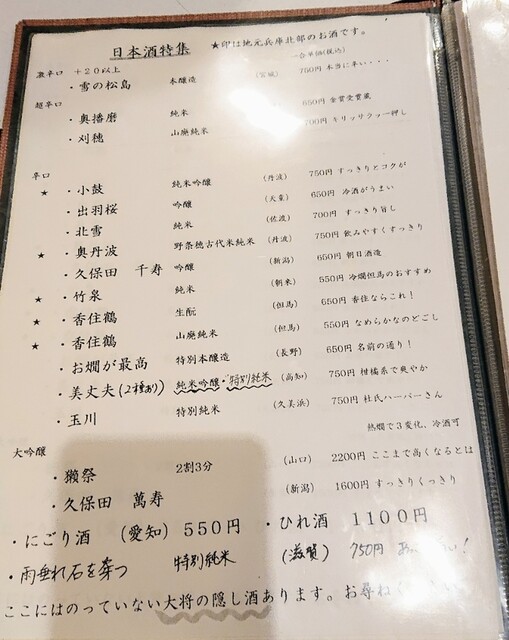 日本酒特集 ★印は地元兵庫北部のお酒です。
一合単価(税込)
激辛口 +20以上
・雪の松島 本醸造 (宮城) 750円 本当に辛い・・・・
超辛口
・奥播磨 純米 650円 金賞受賞蔵
・刈穂 山廃純米 700円 キリッサクッ一押し
辛口
★ ・小鼓 純米吟醸 (丹波) 750円 すっきりとコクが
・出羽桜 吟醸 (天童) 650円 冷酒がうまい
・北雪 純米 (佐渡) 700円 すっきり旨し
★ ・奥丹波 野条穂古代米純米 (丹波) 750円 飲みやすくすっきり
・久保田 千寿 吟醸 (新潟) 650円 朝日酒造
★ ・竹泉 純米 (朝来) 550円 冷燗但馬のおすすめ
★ ・香住鶴 生酛 (但馬) 650円 香住ならこれ!
★ ・香住鶴 山廃純米 (但馬) 550円 なめらかなのどごし
・お燗が最高 特別本醸造 (長野) 650円 名前の通り!
・美丈夫(2種あり) 純米吟醸・特別純米 (高知) 750円 柑橘系で爽やか
・玉川 特別純米 (久美浜) 750円 杜氏ハーパーさん
熱燗で3変化、冷酒可
大吟醸
・獺祭 2割3分 (山口) 2200円 ここまで高くなるとは
・久保田 萬寿 (新潟) 1600円 すっきりくっきり
・にごり酒 (愛知) 550円 ・ひれ酒 1100円
・雨垂れ石を穿つ 特別純米 (滋賀) 750円
ここにはのっていない大将の隠し酒あります。お尋ね